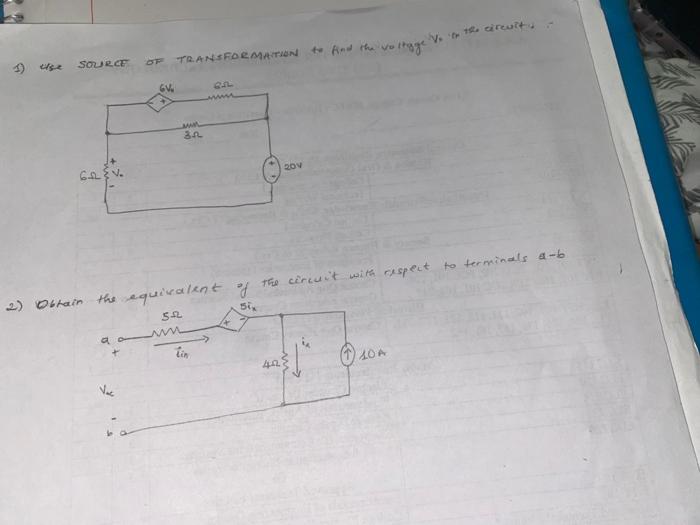 1) Use SOURCE OF TRANSFORMATION to find the voltage Vo in the circuit.
6Vo 6Ω
- +
3Ω
6Ω + Vo - + - 20V
2) Obtain the equivalent of the circuit with respect to terminals a-b
5Ω 5ix
a + - ix
+ iin 4Ω 10A
-
b